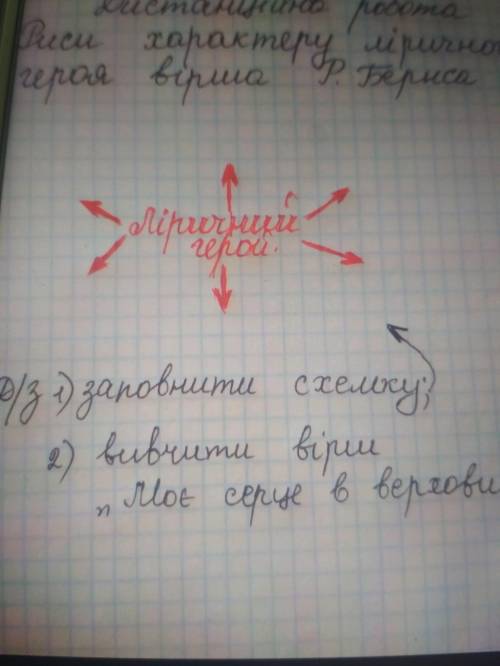 Дистанційна робота
Риси характеру лірично
героя вірша Р. Бернса
Ліричний
герой.
Д/з 1) заповнити схемку;
2) вивчити вірш
„Моє серце в верхови